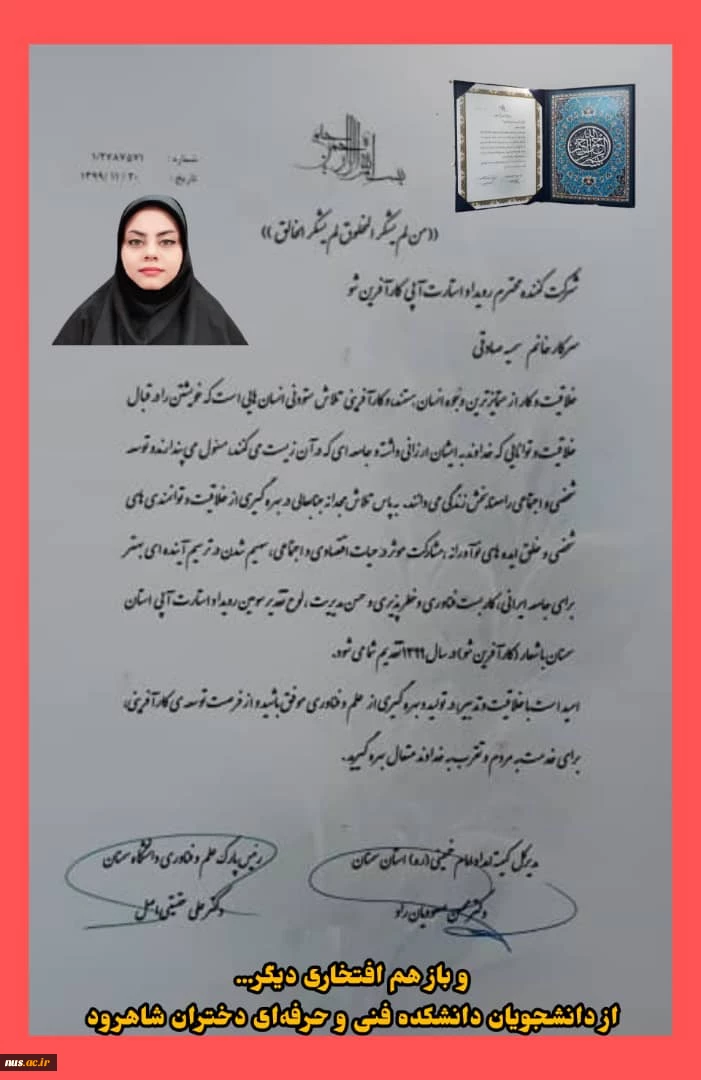 شماره: ۱/۲۷۸۷۵۷۱
تاریخ: ۱۳۹۹/۱۱/۲۰
بسم الله الرحمن الرحیم
((من لم یشکر المخلوق لم یشکر الخالق))
شرکت کننده محترم رویداد استارت آپی کارآفرین شو
سرکار خانم سمیه صادقی
خلاقیت و کار از متمایزترین وجوه انسان هستند، و کارآفرینی تلاش ستودنی انسان هایی است که خویشتن را در قبال
خلاقیت و توانایی که خداوند به ایشان ارزانی داشته و جامعه ای که در آن زیست می کنند، مسئول می پندارند و توسعه
شخصی و اجتماعی را معنا بخش زندگی می دانند. به پاس تلاش مجدانه جنابعالی در بهره گیری از خلاقیت و توانمندی های
شخصی و خلق ایده های نوآورانه، مشارکت موثر در حیات اقتصادی و اجتماعی، سهیم شدن در ترسیم آینده ای بهتر
برای جامعه ایرانی، کاربست فناوری و خطرپذیری و حسن مدیریت، لوح تقدیر سومین رویداد استارت آپی استان
سمنان با شعار (کارآفرین شو) در سال ۱۳۹۹ تقدیم شما می شود.
امید است با خلاقیت و تدبیر در تولید و بهره گیری از علم و فناوری موفق باشید و از فرصت توسعه ی کارآفرینی،
برای خدمت به مردم و تقرب به خداوند متعال بهره گیرید.
مدیرکل کمیته امداد امام خمینی (ره) استان سمنان
دکتر محسن مسعودیان راد
رئیس پارک علم و فناوری دانشگاه سمنان
دکتر علی حقیقی اصل
و باز هم افتخاری دیگر...
از دانشجویان دانشکده فنی و حرفه‌ای دختران شاهرود
nus.ac.ir